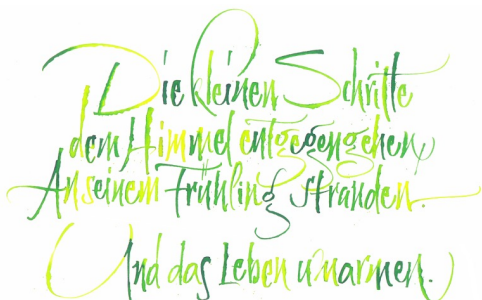 Die kleinen Schritte
dem Himmel entgegengehen,
An seinem Frühling stranden.
Und das Leben umarmen.